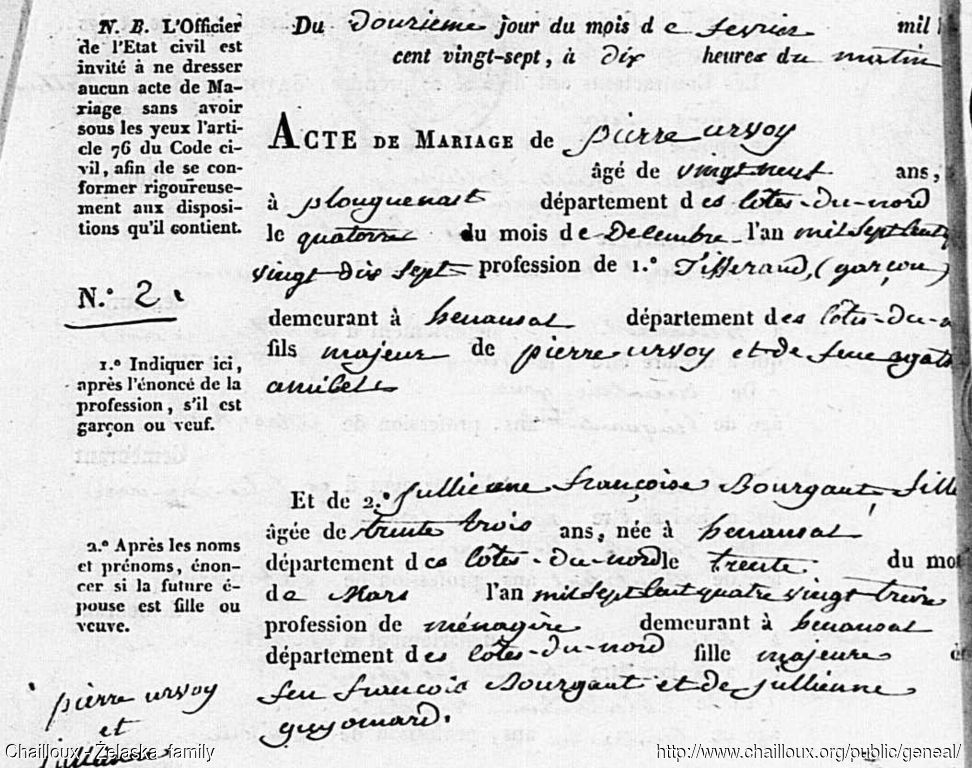 N. B. L'Officier
de l'Etat civil est
invité à ne dresser
aucun acte de Ma-
riage sans avoir
sous les yeux l'arti-
cle 76 du Code ci-
vil, afin de se con-
former rigoureuse-
ment aux disposi-
tions qu'il contient.
N.° 2.
1.° Indiquer ici,
après l'énoncé de la
profession, s'il est
garçon ou veuf.
2.° Après les noms
et prénoms, énon-
cer si la future é-
pouse est fille ou
veuve.
pierre urvoy
et
Du douzieme jour du mois de fevrier mil
cent vingt-sept, à dix heures du matin
ACTE DE MARIAGE de pierre urvoy
âgé de vingt neuf ans,
à plouguenast département des Côtes-du-nord
le quatorze du mois de Decembre l'an mil sept cent q
vingt dix sept profession de 1.° Tisserand, (garçon)
demeurant à henansal département des Côtes-du-n
fils majeur de pierre urvoy et de feue agath
amibel
Et de 2.° Jullienne françoise Bourgault, fille
âgée de trente trois ans, née à henansal
département des Côtes-du-nord le trente du moi
de Mars l'an mil sept cent quatre vingt treize
profession de ménagère demeurant à henansal
département des Côtes-du-nord fille majeure
feu françois Bourgault et de jullienne
guyomard.
Chailloux - Żelaska family
http://www.chailloux.org/public/geneal/